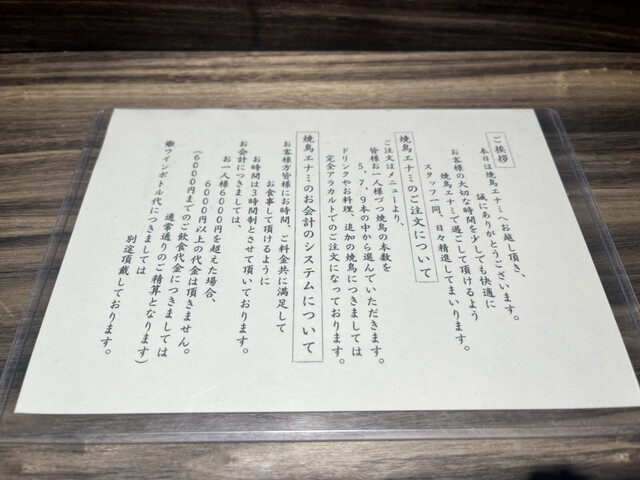 ご挨拶
本日は焼鳥エナミへお越し頂き、
誠にありがとうございます。
お客様の大切な時間を少しでも快適に
焼鳥エナミで過ごして頂けるよう
スタッフ一同、日々精進してまいります。
焼鳥エナミのご注文について
ご注文はメニューより、
皆様お一人様づつ焼鳥の本数を
5、7、9本の中から選んでいただきます。
ドリンクやお料理、追加の焼鳥につきましては
完全アラカルトでのご注文になっております。
焼鳥エナミのお会計のシステムについて
お客様方皆様にお時間、ご料金共に満足して
お食事して頂けるように
お時間は3時間制とさせて頂いております。
お会計につきましては、
お一人様6000円を超えた場合、
6000円以上の代金は頂きません。
(6000円までのご飲食代金につきましては
通常通りのご精算となります)
※ワインボトル代につきましては
別途頂戴しております。